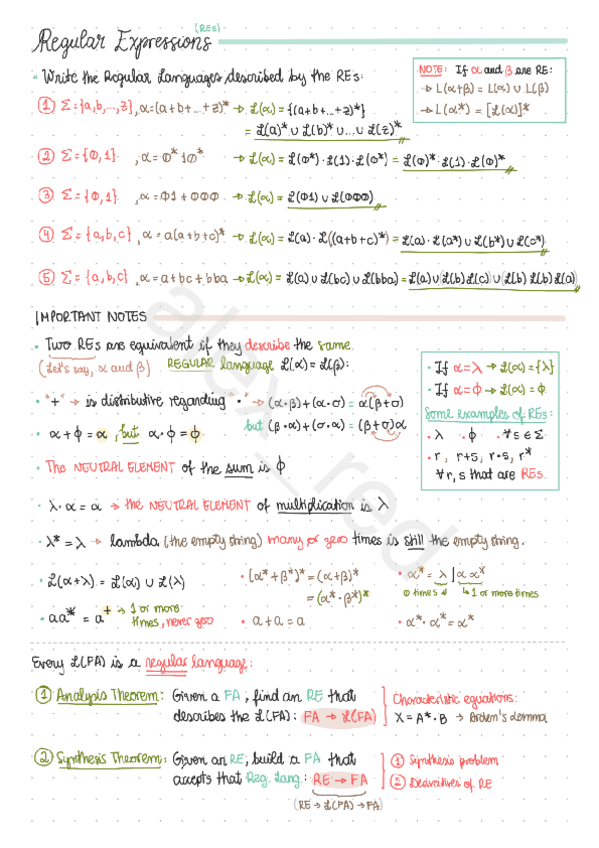 Regular Expressions (REs)
• Write the Regular Languages described by the REs:
NOTE: If α and β are RE:
→ L(α+β) = L(α) ∪ L(β)
→ L(α*) = [L(α)]*
① Σ = {a,b,...,z}, α = (a+b+...+z)* → L(α) = {(a+b+...+z)*}
= L(a)* ∪ L(b)* ∪ ... ∪ L(z)*
② Σ = {0,1}, α = 0*10* → L(α) = L(0*)·L(1)·L(0*) = L(0)*·L(1)·L(0)*
③ Σ = {0,1}, α = 01+000 → L(α) = L(01) ∪ L(000)
④ Σ = {a,b,c}, α = a(a+b+c)* → L(α) = L(a)·L((a+b+c)*) = L(a)·L(a*) ∪ L(b*) ∪ L(c*)
⑤ Σ = {a,b,c}, α = a+bc+bba → L(α) = L(a) ∪ L(bc) ∪ L(bba) = L(a) ∪ (L(b)L(c)) ∪ (L(b)L(b)L(a)
IMPORTANT NOTES
• Two REs are equivalent if they describe the same
(Let's say, α and β) REGULAR language L(α) = L(β):
• If α = λ → L(α) = {λ}
• If α = ϕ → L(α) = ϕ
Some examples of REs:
• λ • ϕ • ∀s ∈ Σ
• r, r+s, r•s, r*
∀r,s that are REs.
• "+" → is distributive regarding "•" → (α·β)+(α·σ) = α(β+σ)
but (β·α)+(σ·α) = (β+σ)α
• α+ϕ = α, but α·ϕ = ϕ
• The NEUTRAL ELEMENT of the sum is ϕ
• λ·α = α → the NEUTRAL ELEMENT of multiplication is λ
• λ* = λ → lambda (the empty string) many or zero times is still the empty string.
• L(α+λ) = L(α) ∪ L(λ) • (α*+β*)* = (α+β)* • α* = λ | α α*
= (α*·β*)* 0 times ↲ ↳ 1 or more times
• aa* = a⁺ → 1 or more times, never zero • a+a = a • α*·α* = α*
Every L(FA) is a regular language:
① Analysis Theorem: Given a FA, find an RE that
describes the L(FA): FA → L(FA)
Characteristic equations:
X = A*·B → Arden's Lemma
② Synthesis Theorem: Given an RE, build a FA that
accepts that Reg. Lang.: RE → FA
(RE → L(FA) → FA)
① Synthesis problem
② Derivatives of RE
alex_red